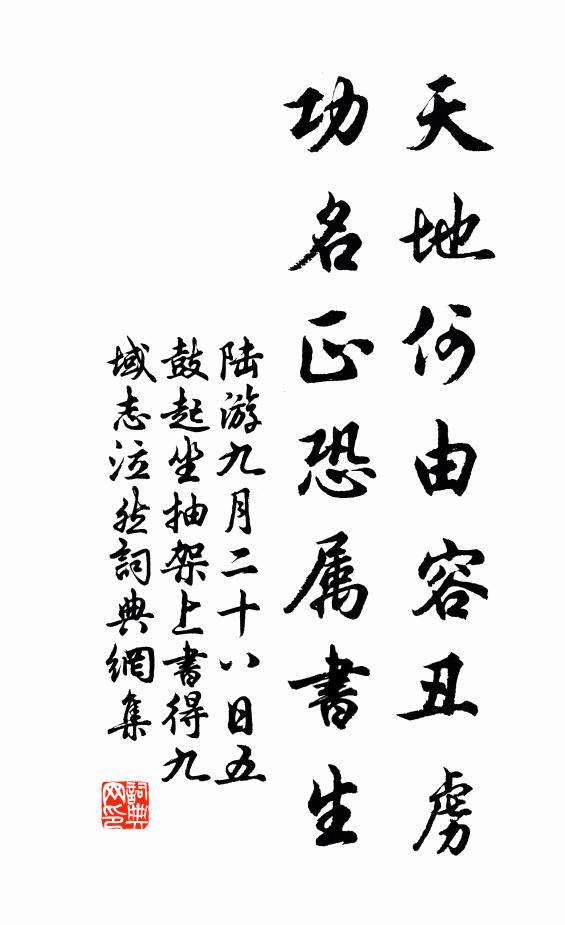 天地何由容丑虏
功名正恐属書生
陆游九月二十八日五
鼓起坐抽架上書得九
域志泣然詞典網集
詞典
网印